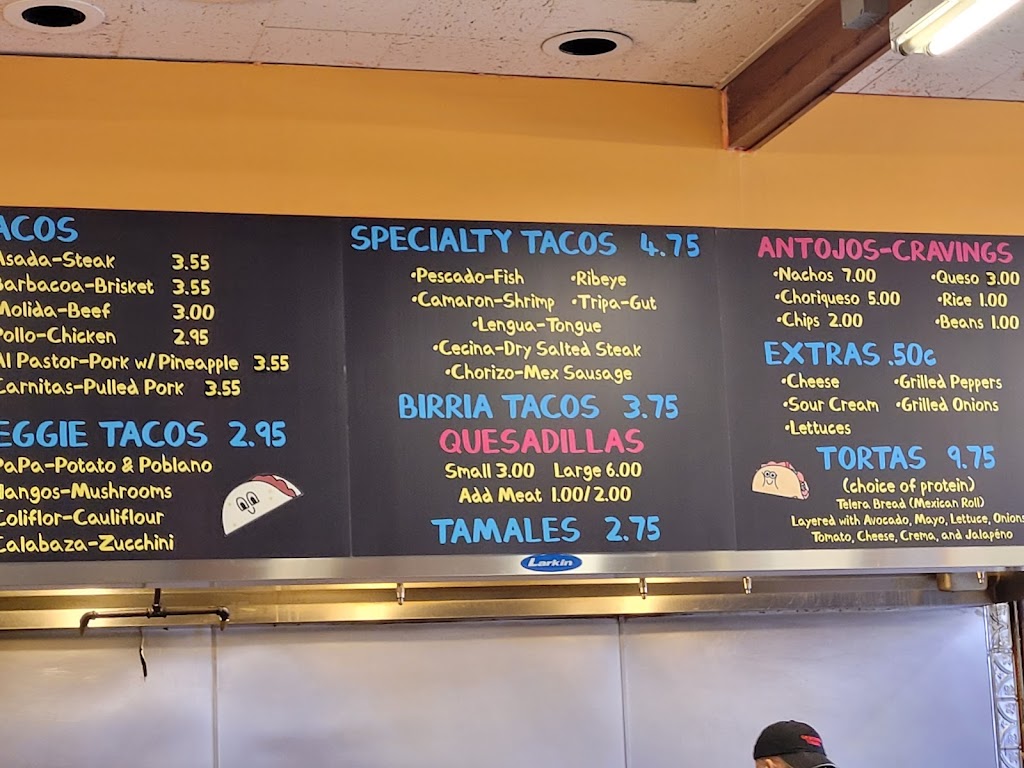 ACOS
Asada-Steak 3.55
Barbacoa-Brisket 3.55
Molida-Beef 3.00
Pollo-Chicken 2.95
Al Pastor-Pork w/Pineapple 3.55
Carnitas-Pulled Pork 3.55
EGGIE TACOS 2.95
PaPa-Potato & Poblano
Hangos-Mushrooms
Coliflor-Cauliflour
Calabaza-Zucchini
SPECIALTY TACOS 4.75
•Pescado-Fish •Ribeye
•Camaron-Shrimp •Tripa-Gut
•Lengua-Tongue
•Cecina-Dry Salted Steak
•Chorizo-Mex Sausage
BIRRIA TACOS 3.75
QUESADILLAS
Small 3.00 Large 6.00
Add Meat 1.00/2.00
TAMALES 2.75
ANTOJOS-CRAVINGS
•Nachos 7.00 •Queso 3.00
•Choriqueso 5.00 •Rice 1.00
•Chips 2.00 •Beans 1.00
EXTRAS .50¢
•Cheese •Grilled Peppers
•Sour Cream •Grilled Onions
•Lettuces
TORTAS 9.75
(choice of protein)
Telera Bread (Mexican Roll)
Layered with Avocado, Mayo, Lettuce, Onions
Tomato, Cheese, Crema, and Jalapéno
Larkin